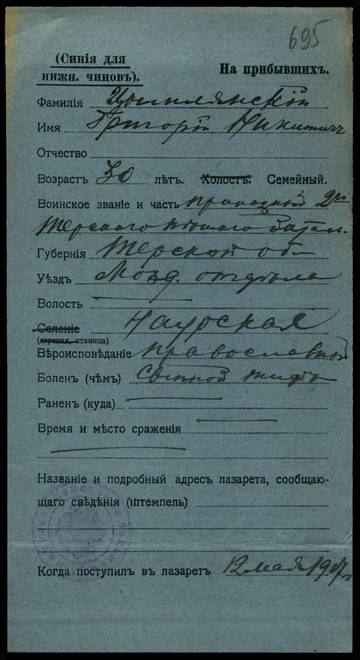 695
(Синія для
нижн. чиновъ).
На прибывшихъ.
Фамилія Цымлянскій
Имя Григорій Никитич
Отчество
Возрастъ 30 лѣтъ. Холостъ. Семейный.
Воинское званіе и часть 2го
Терского пѣшаго батал.
Губернія Терской об
Уѣздъ Мозд. отдѣла
Волость
Селеніе Наурская
(деревня, станица)
Вѣроисповѣданіе православный
Боленъ (чѣмъ) Сыпной тифъ
Раненъ (куда)
Время и мѣсто сраженія
Названіе и подробный адресъ лазарета, сообщаю-
щаго свѣдѣнія (штемпель)
Когда поступилъ въ лазаретъ 12 мая 1917